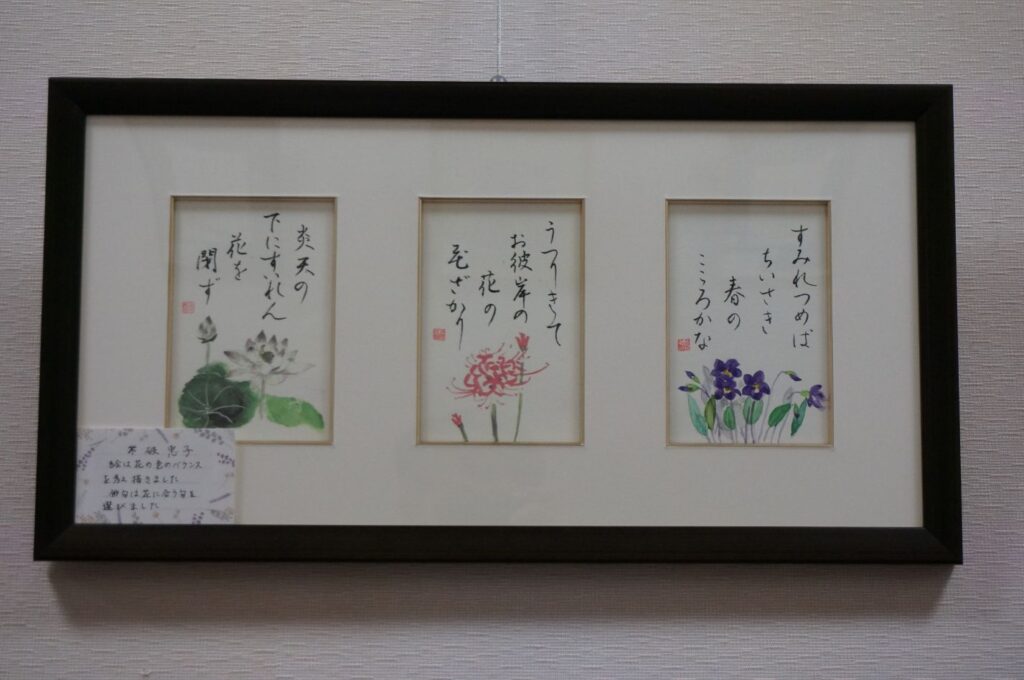 すみれつめば
ちいさき
春の
こころかな
うつりきて
お彼岸の
花の
花ざかり
炎天の
下にすいれん
花を
閉ず
不破
絵は花の色のバランス
を考え描きました
俳句は花に合う句を
選びました